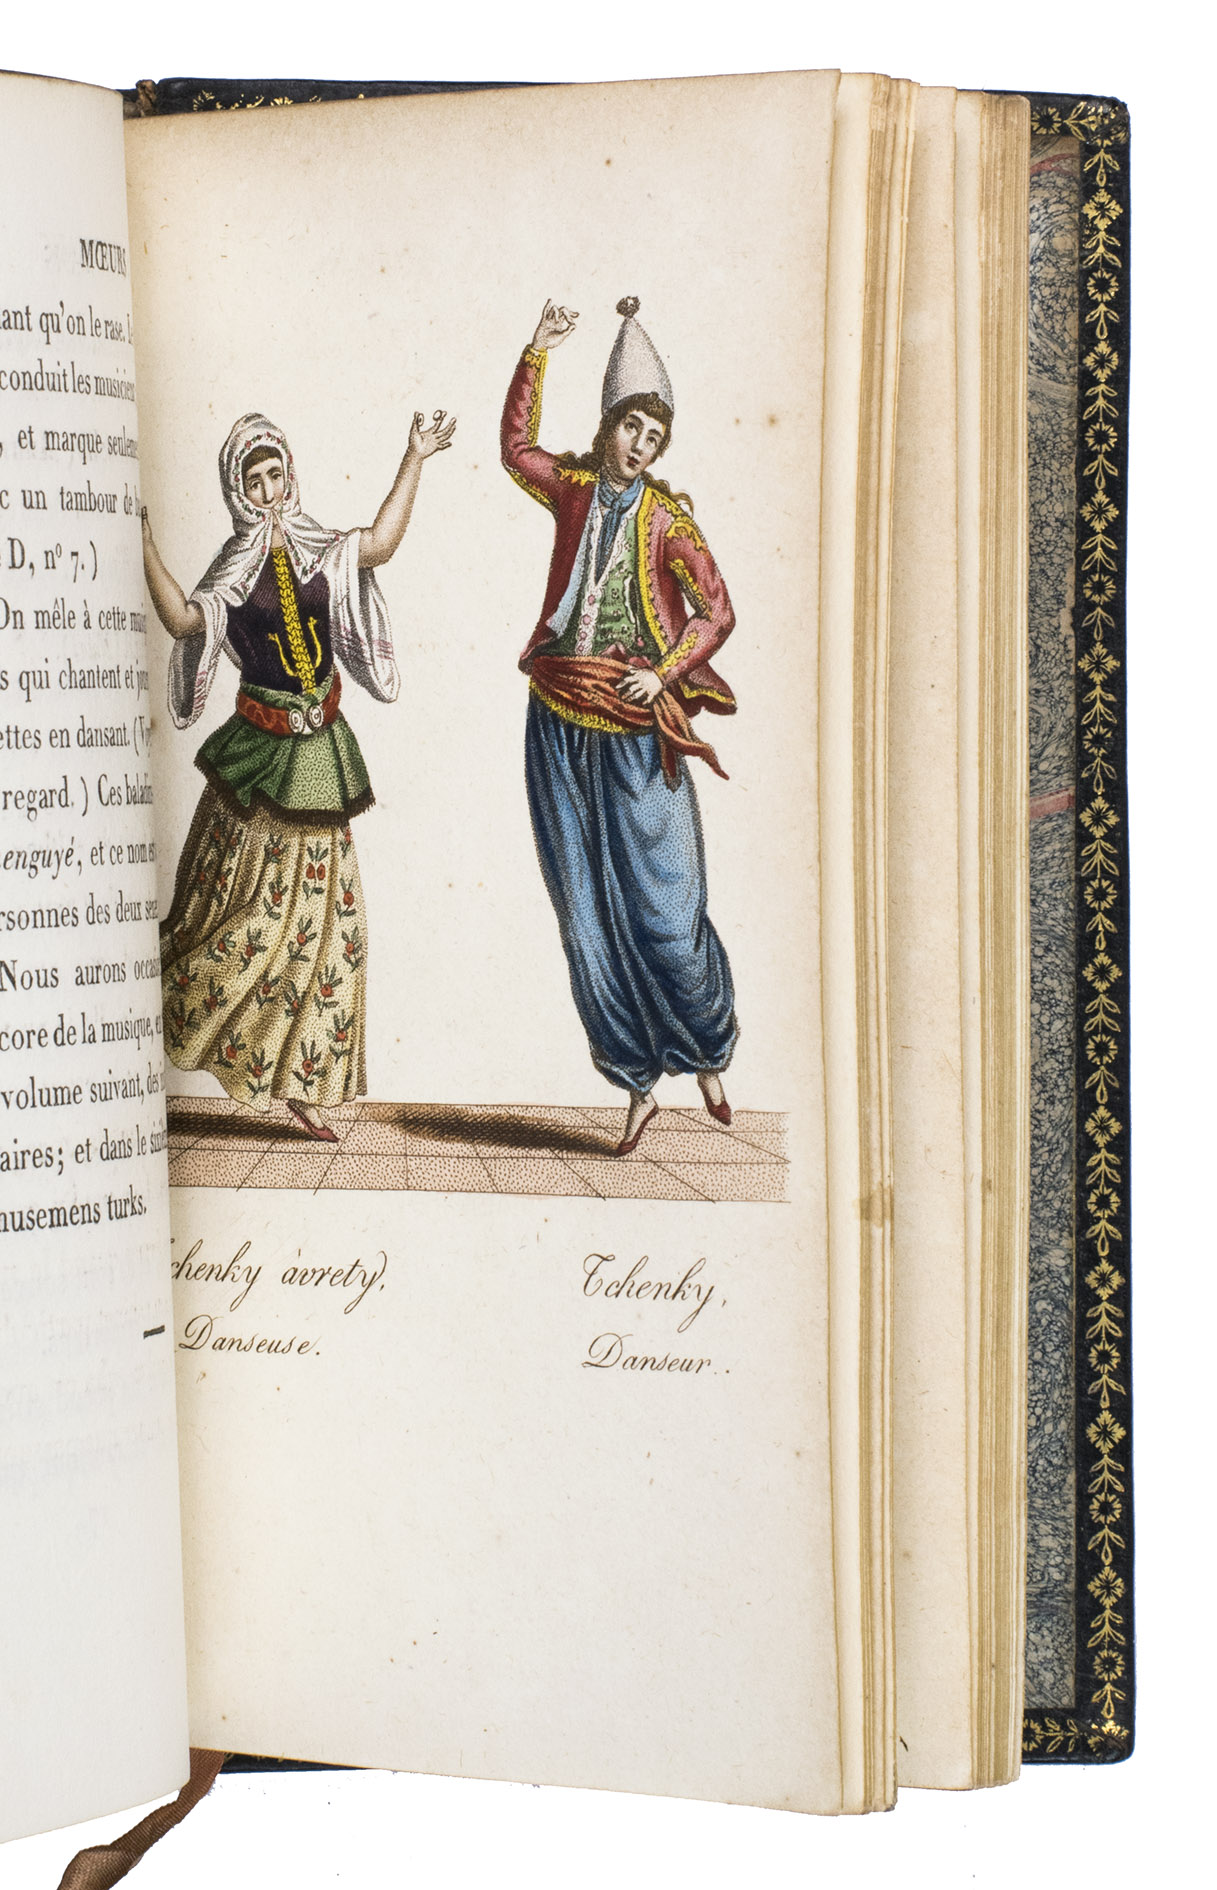 MŒURS
ant qu'on le rase.
conduit les musiciens
, et marque seuleme
c un tambour de
D, nº 7. )
On mêle à cette
s qui chantent et
ettes en dansant. (
regard. ) Ces baladins
enguyé, et ce nom
rsonnes des deux sexe
Nous aurons occas
core de la musique,
volume suivant, des
aires; et dans le
musemens turks.
chenky àvrety,
Danseuse.
Tchenky,
Danseur.